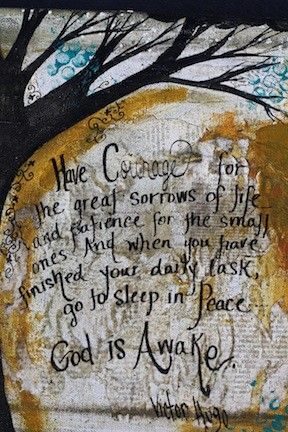 Have Courage for
the great sorrows of life
and Patience for the small
ones And when you have
finished your daily task,
go to sleep in Peace
God is Awake.
Victor Hugo